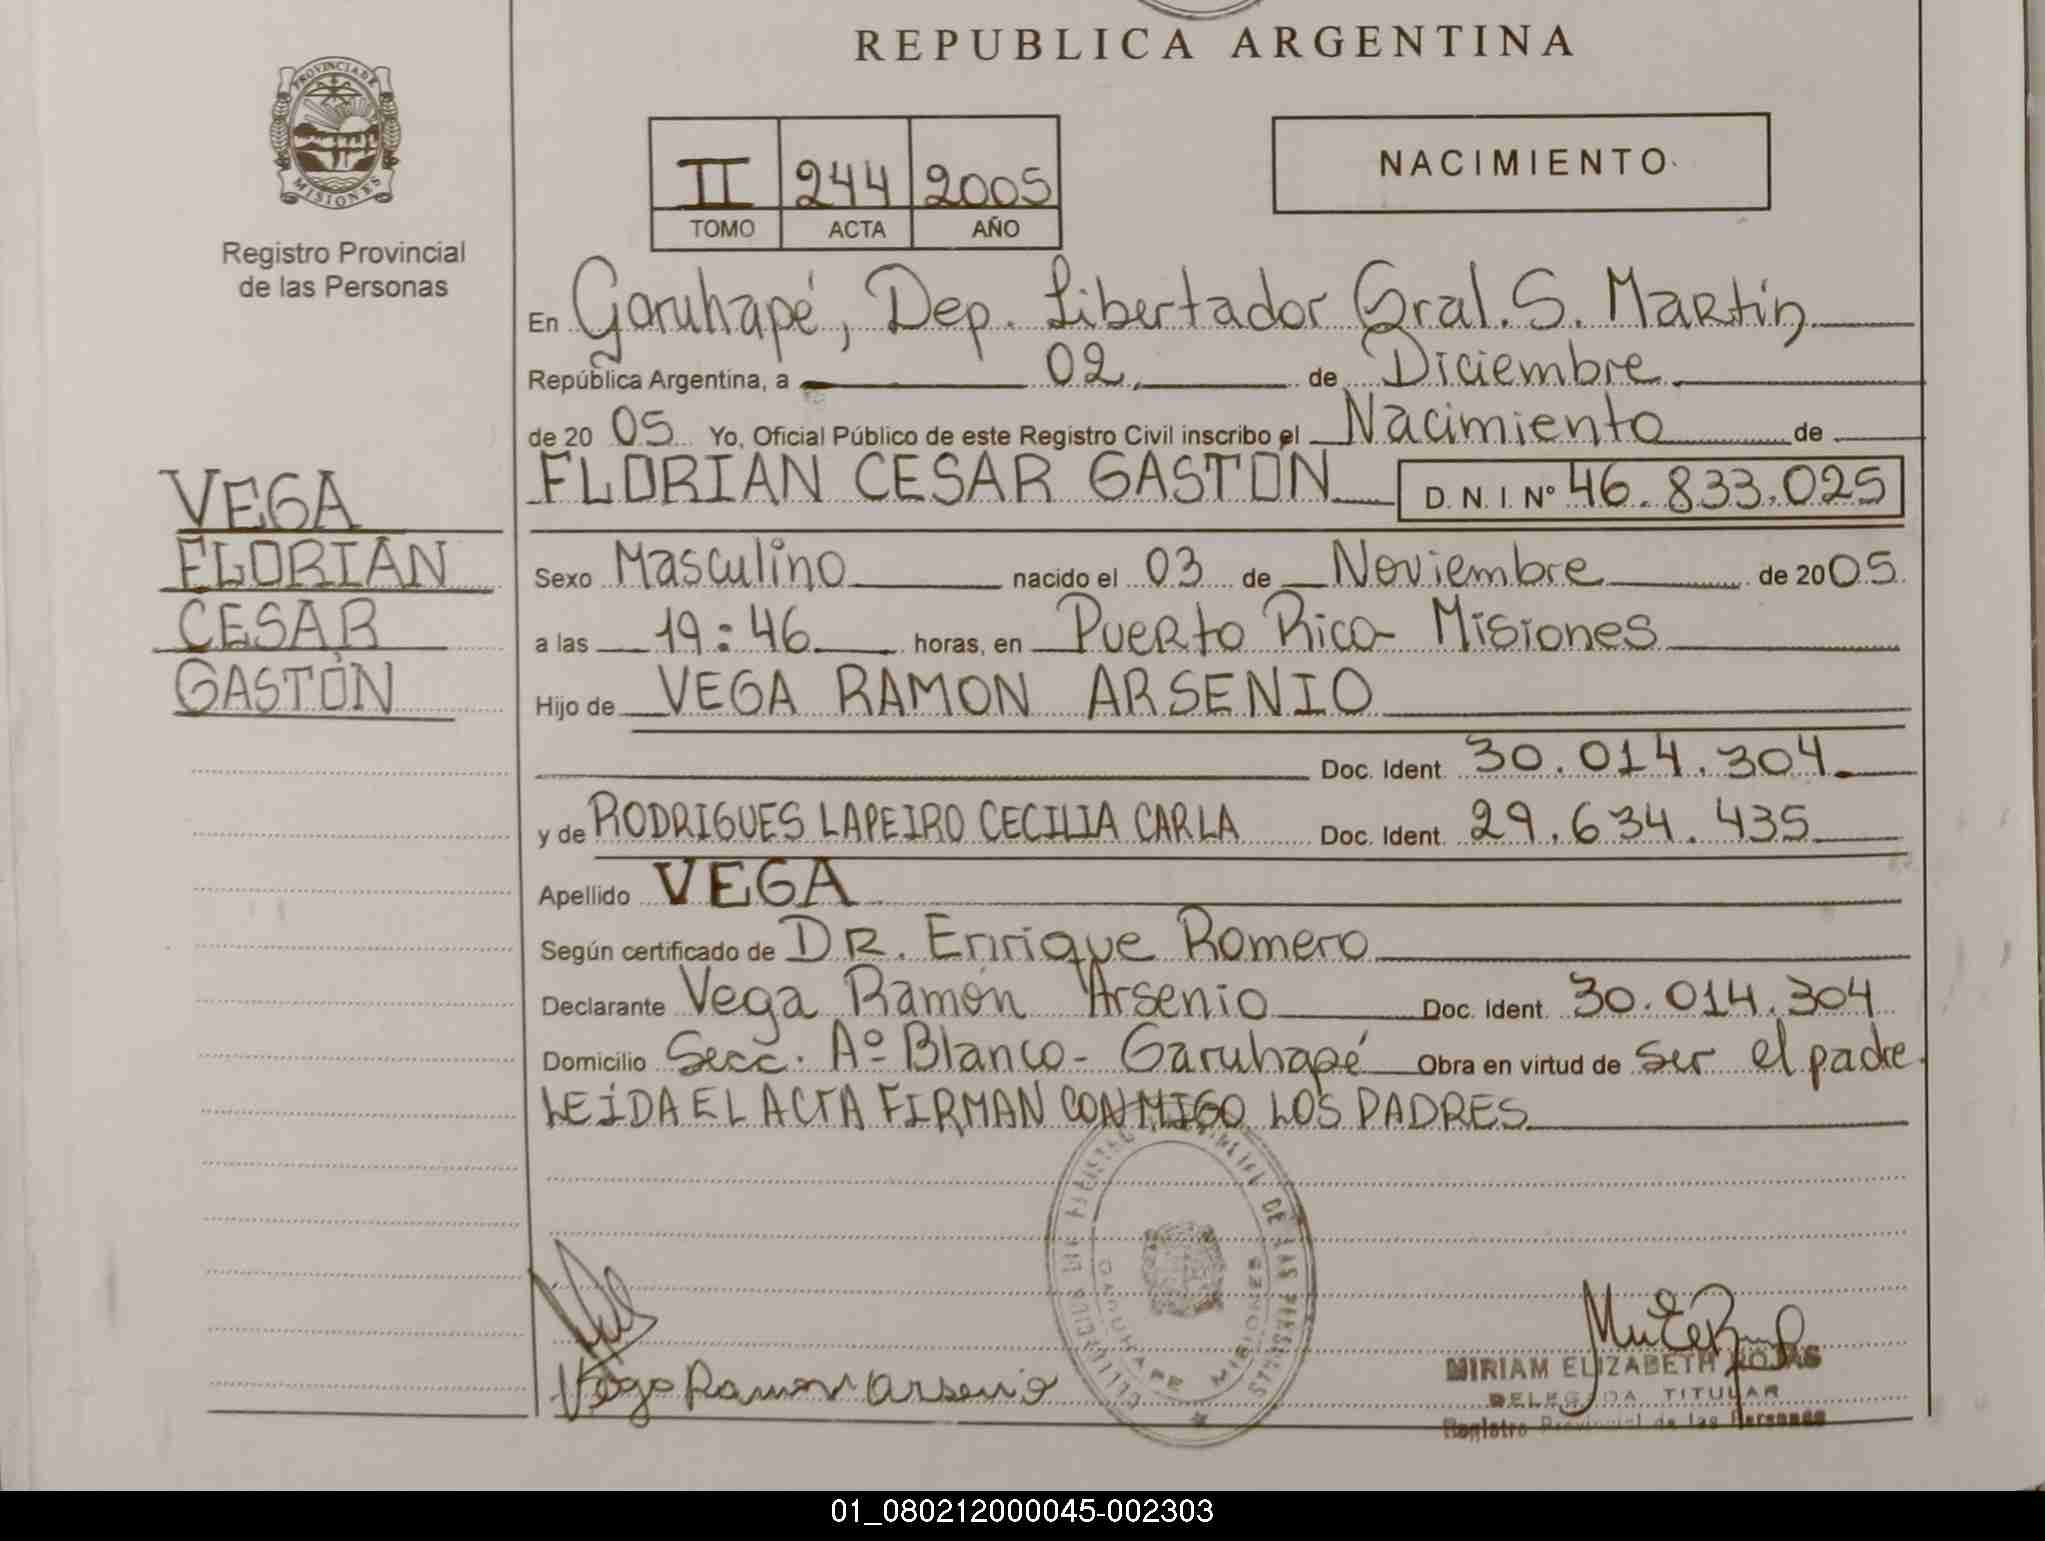 REPUBLICA ARGENTINA
PROVINCIA DE
MISIONES
Registro Provincial
de las Personas
II 244 2005
TOMO ACTA AÑO
NACIMIENTO
En Garuhapé, Dep. Libertador Gral. S. Martín
República Argentina, a 02 de Diciembre
de 20 05 Yo, Oficial Público de este Registro Civil inscribo el Nacimiento de
FLORIAN CESAR GASTÓN D. N. I. Nº 46.833.025
VEGA
FLORIÁN
CESAR
GASTÓN
Sexo Masculino nacido el 03 de Noviembre de 2005
a las 19:46 horas, en Puerto Rico - Misiones
Hijo de VEGA RAMON ARSENIO
Doc. Ident. 30.014.304
y de RODRIGUES LAPEIRO CECILIA CARLA Doc. Ident. 29.634.435
Apellido VEGA
Según certificado de DR. Enrique Romero
Declarante Vega Ramón Arsenio Doc. Ident. 30.014.304
Domicilio Secc. Aº Blanco - Garuhapé Obra en virtud de ser el padre
LEÍDA EL ACTA FIRMAN CONMIGO LOS PADRES
DE LAS PERSONAS
GARUHAPE MISIONES
Vega Ramon Arsenio
MIRIAM ELIZABETH ROJAS
DELEGADA TITULAR
Registro Provincial de las Personas
01_080212000045-002303